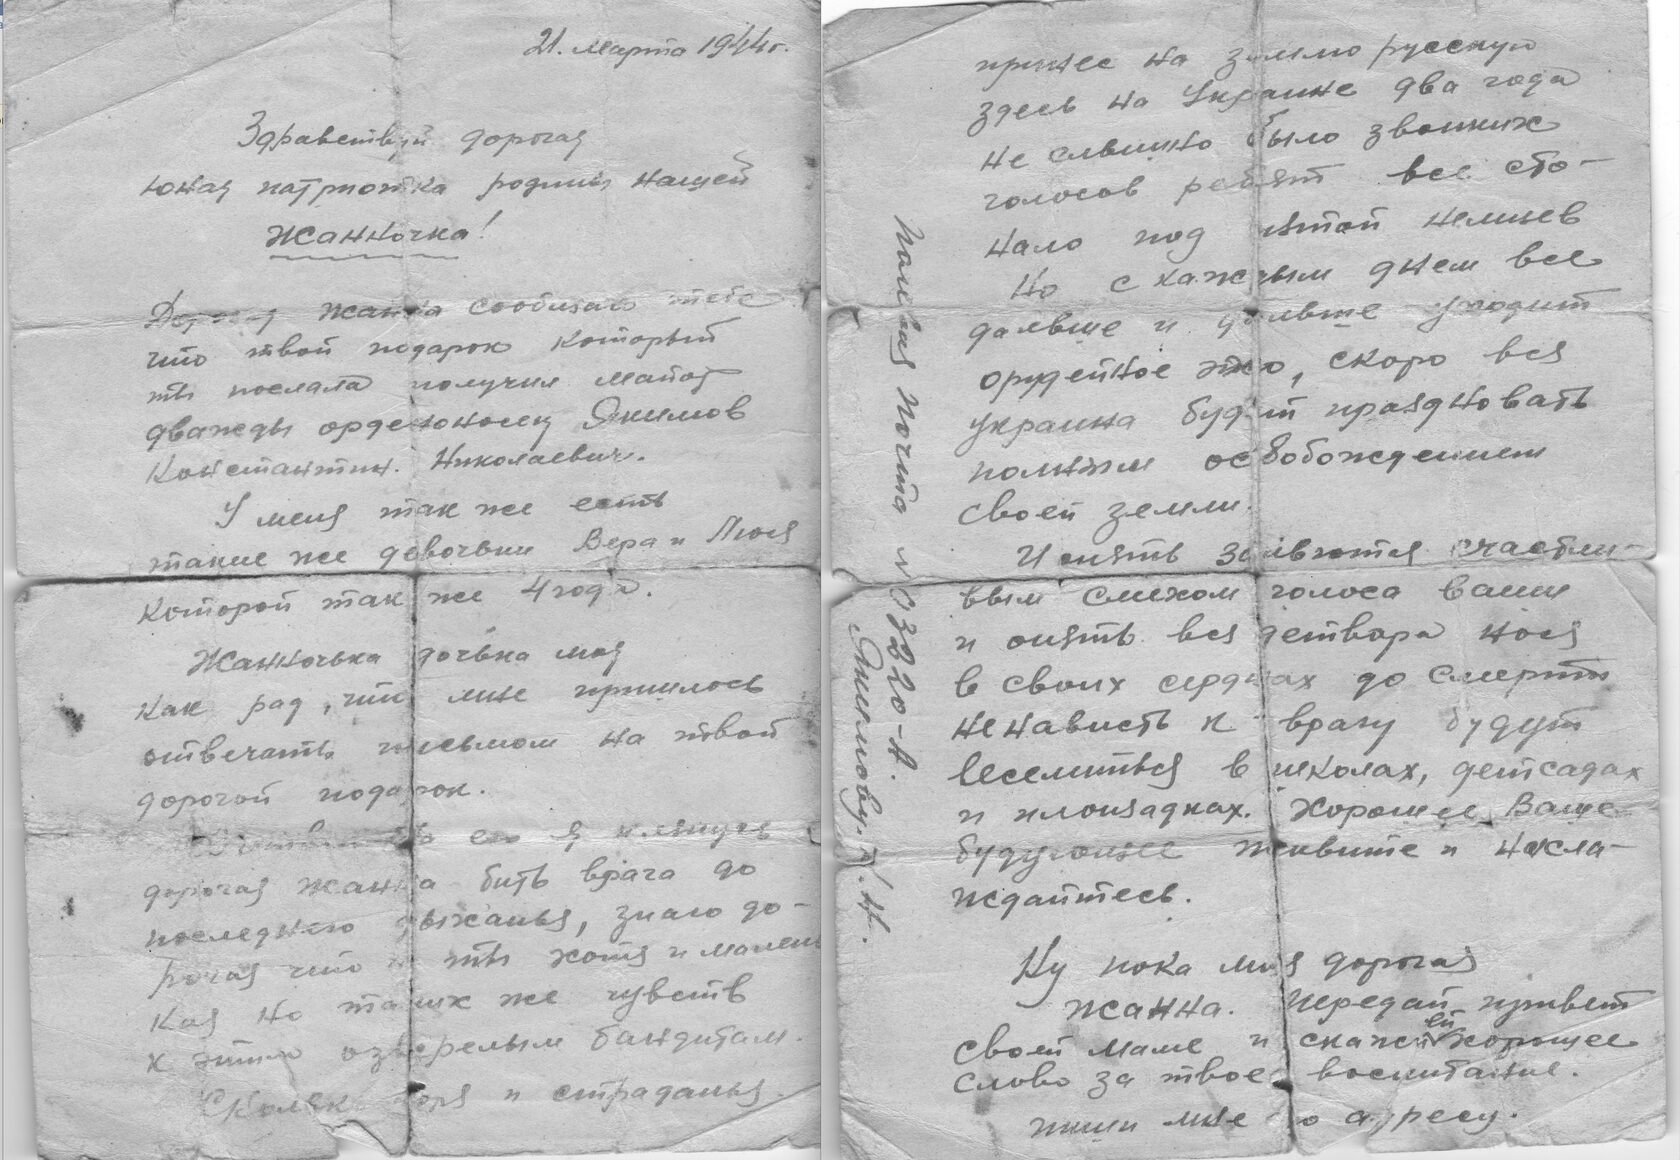 21. Марта 1944г.
Здравствуй дорогая
юная патриотка родины нашей
Жанночка!
Дорогая Жанна сообщаю тебе
что твой подарок который
ты послала получил майор
дважды орденоносец Якимов
Константин. Николаевич.
У меня так же есть
такие же девочьки Вера и Люся
которой так же 4 года.
Жанночька дочька моя
как рад, что мне пришлось
отвечать письмом на твой
дорогой подарок.
его я клянусь
дорогая Жанна бить врага до
последнего дыханья, знаю до-
рогая что и ты хотя и малень
кая но таких же чувств
к этим озверелым бандитам.
Сколько горя и страданья.
принес на землю русскую
здесь на Украине два года
не слышно было звонких
голосов ребят все сто-
нало под пятой немцев
Но с кажзым днем все
дальше и дальше уходит
орудейное эхо, скоро вся
украина будет праздновать
полным освобождением
своей земли.
И опять зальются счастли-
вым смехом голоса ваши
и опять вся детвора нося
в своих сердцах до смерти
ненависть к врагу будут
веселиться в школах, детсадах
и площадках. Хорошее Ваше
будующее живите и насла-
ждайтесь.
Ну пока моя дорогая
Жанна. Передай привет
своей маме и скажи ей хорошее
слово за твое воспитание.
пиши мне по адресу.
Полевая Почта N 03220-А.
Якимову К.Н.